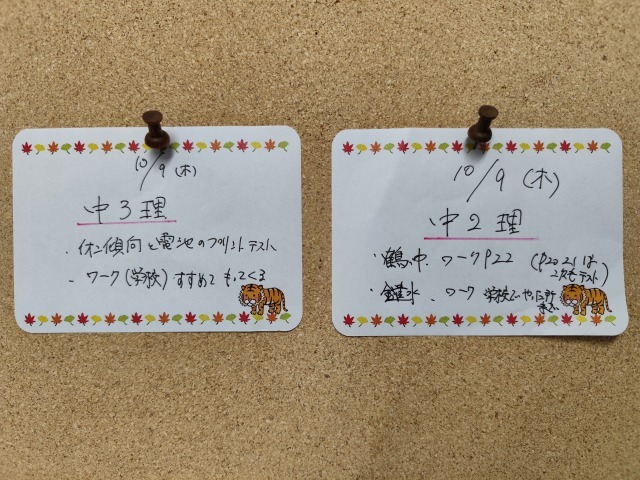 10/9(木)
中3理
・イオン傾向と電池のプリントテスト
・ワーク(学校)すすめてもってくる
10/9(木)
中2理
・鶴中.ワークP22(P20.21は
テスト)
・ワーク学校でやった所
まで